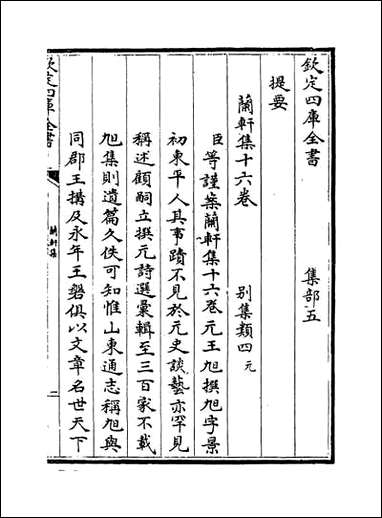 欽定四庫全書 集部五
提要
蘭軒集十六卷 别集類四元
臣等謹案蘭軒集十六卷元王旭撰旭字景
初東平人其事蹟不見於元史談藝亦罕見
稱述顧嗣立撰元詩選彙輯至三百家不載
旭集則遺篇久佚可知惟山東通志稱旭與
同郡王搆及永年王磐俱以文章名世天下
欽定四庫全書
蘭軒集
二